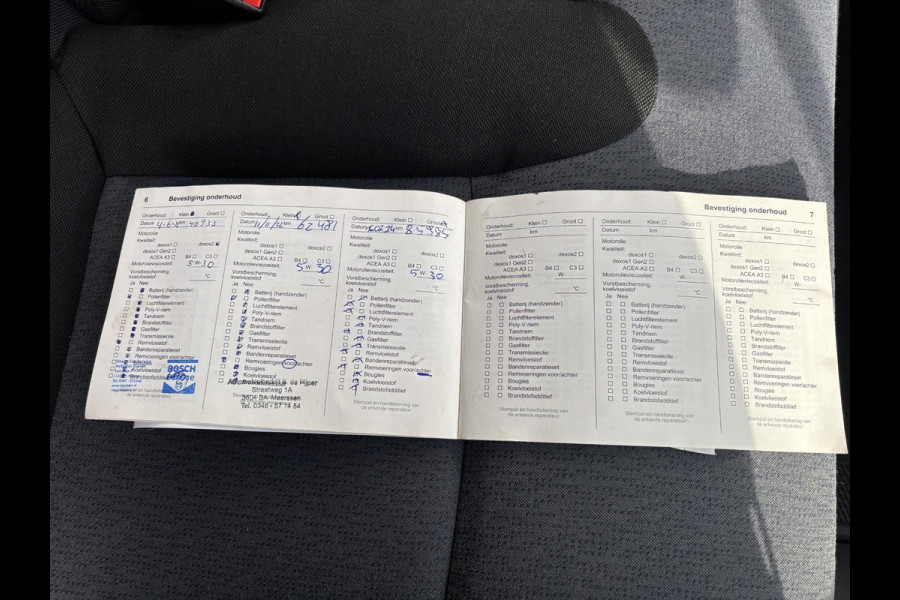 6 Bevestiging onderhoud
Onderhoud: Klein Groot
Datum km
Motorolie
Kwaliteit:
dexos1 dexos2
dexos1 Gen2
ACEA A3 B4 C3
Motorolieviscositeit: 5 W- 30
Vorstbescherming,
koelvloeistof °C
Ja Nee
Batterij (handzender)
Pollenfilter
Luchtfilterelement
Poly-V-riem
Tandriem
Brandstoffilter
Gasfilter
Transmissieolie
Remvloeistof
Bandenreparatieset
Remvoeringen voor/achter
BOSCH
Onderhoud: Klein Groot
Datum km 62 481
Motorolie
Kwaliteit:
dexos1 dexos2
dexos1 Gen2
ACEA A3 B4 C3
Motorolieviscositeit: 5 W- 30
Vorstbescherming,
koelvloeistof °C
Ja Nee
Batterij (handzender)
Pollenfilter
Luchtfilterelement
Poly-V-riem
Tandriem
Brandstoffilter
Gasfilter
Transmissieolie
Remvloeistof
Bandenreparatieset
Remvoeringen voor/achter
Bougies
Koelvloeistof
Straatweg 1A
3604 BA Maarssen
Tel. 0346 - 57 14 54
Onderhoud: Klein Groot
Datum km
Motorolie
Kwaliteit:
dexos1 dexos2
dexos1 Gen2
ACEA A3 B4 C3
Motorolieviscositeit: 5 W- 30
Vorstbescherming,
koelvloeistof °C
Ja Nee
Batterij (handzender)
Pollenfilter
Luchtfilterelement
Poly-V-riem
Tandriem
Brandstoffilter
Gasfilter
Transmissieolie
Remvloeistof
Bandenreparatieset
Remvoeringen voor/achter
Bougies
Koelvloeistof
Brandstofadditief
Stempel en handtekening van
de erkende reparateur
Bevestiging onderhoud 7
Onderhoud: Klein Groot
Datum km
Motorolie
Kwaliteit:
dexos1 dexos2
dexos1 Gen2
ACEA A3 B4 C3
Motorolieviscositeit: W-
Vorstbescherming,
koelvloeistof °C
Ja Nee
Batterij (handzender)
Pollenfilter
Luchtfilterelement
Poly-V-riem
Tandriem
Brandstoffilter
Gasfilter
Transmissieolie
Remvloeistof
Bandenreparatieset
Remvoeringen voor/achter
Bougies
Koelvloeistof
Brandstofadditief
Stempel en handtekening van
de erkende reparateur
Onderhoud: Klein Groot
Datum km
Motorolie
Kwaliteit:
dexos1 dexos2
dexos1 Gen2
ACEA A3 B4 C3
Motorolieviscositeit: W-
Vorstbescherming,
koelvloeistof °C
Ja Nee
Batterij (handzender)
Pollenfilter
Luchtfilterelement
Poly-V-riem
Tandriem
Brandstoffilter
Gasfilter
Transmissieolie
Remvloeistof
Bandenreparatieset
Remvoeringen voor/achter
Bougies
Koelvloeistof
Brandstofadditief
Stempel en handtekening van
de erkende reparateur
Onderhoud: Klein Groot
Datum km
Motorolie
Kwaliteit:
dexos1 dexos2
dexos1 Gen2
ACEA A3 B4 C3
Motorolieviscositeit: W-
Vorstbescherming,
koelvloeistof °C
Ja Nee
Batterij (handzender)
Pollenfilter
Luchtfilterelement
Poly-V-riem
Tandriem
Brandstoffilter
Gasfilter
Transmissieolie
Remvloeistof
Bandenreparatieset
Remvoeringen voor/achter
Bougies
Koelvloeistof
Brandstofadditief
Stempel en handtekening van
de erkende reparateur